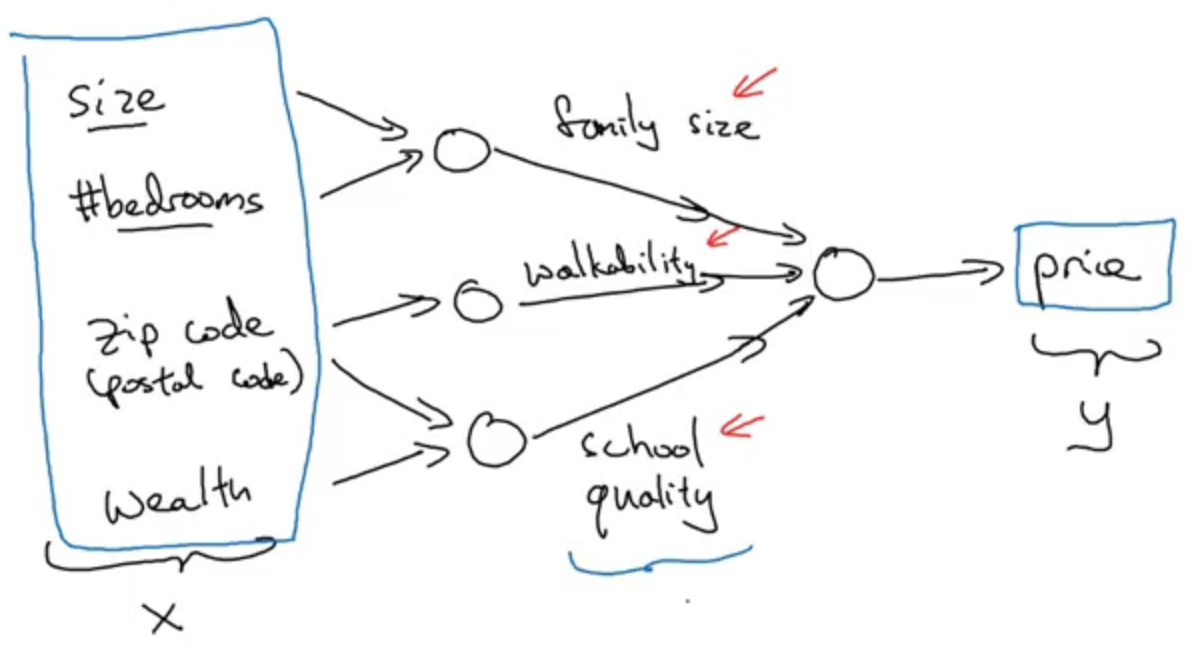 size
#bedrooms
zip code
(postal code)
wealth
x
family size
walkability
school
quality
price
y